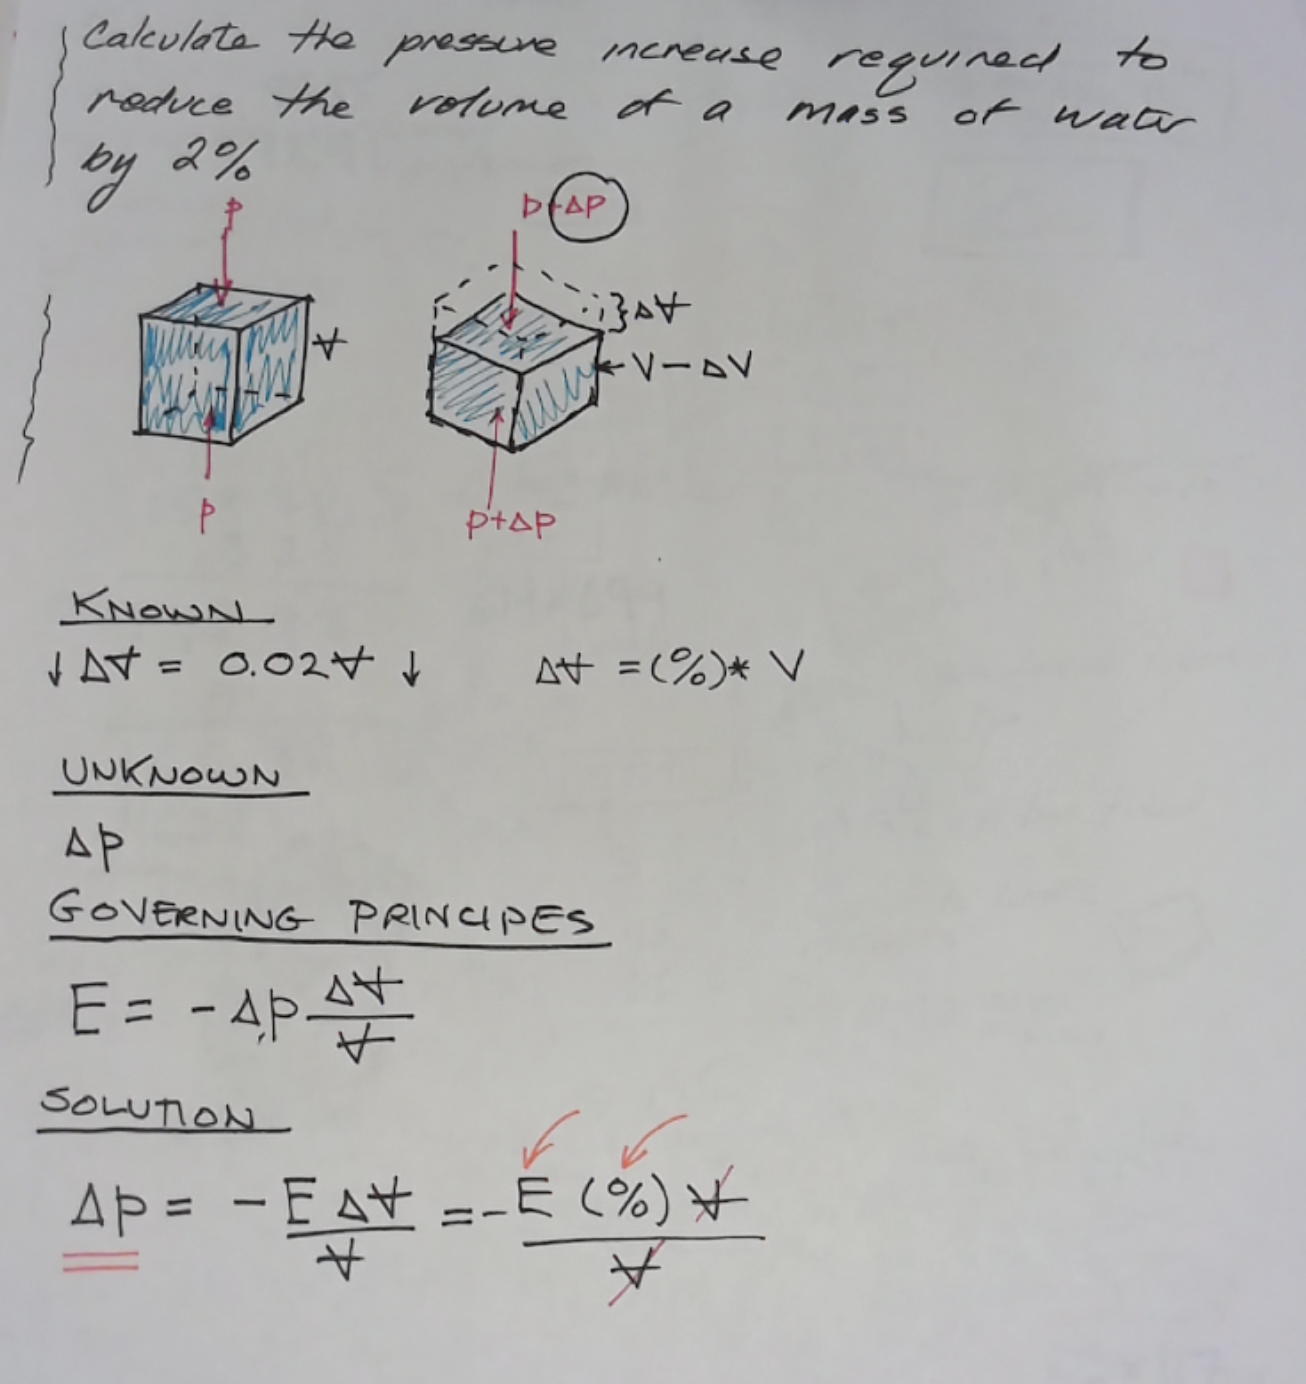 Calculate the pressure increase required to
reduce the volume of a mass of water
by 2%
p
p+Δp
V
}ΔV
V-ΔV
p
p+Δp
KNOWN
↓ ΔV = 0.02V ↓ ΔV = (%)* V
UNKNOWN
Δp
GOVERNING PRINCIPES
E = -Δp ΔV/V
SOLUTION
Δp = -E ΔV/V = -E (%) V/V